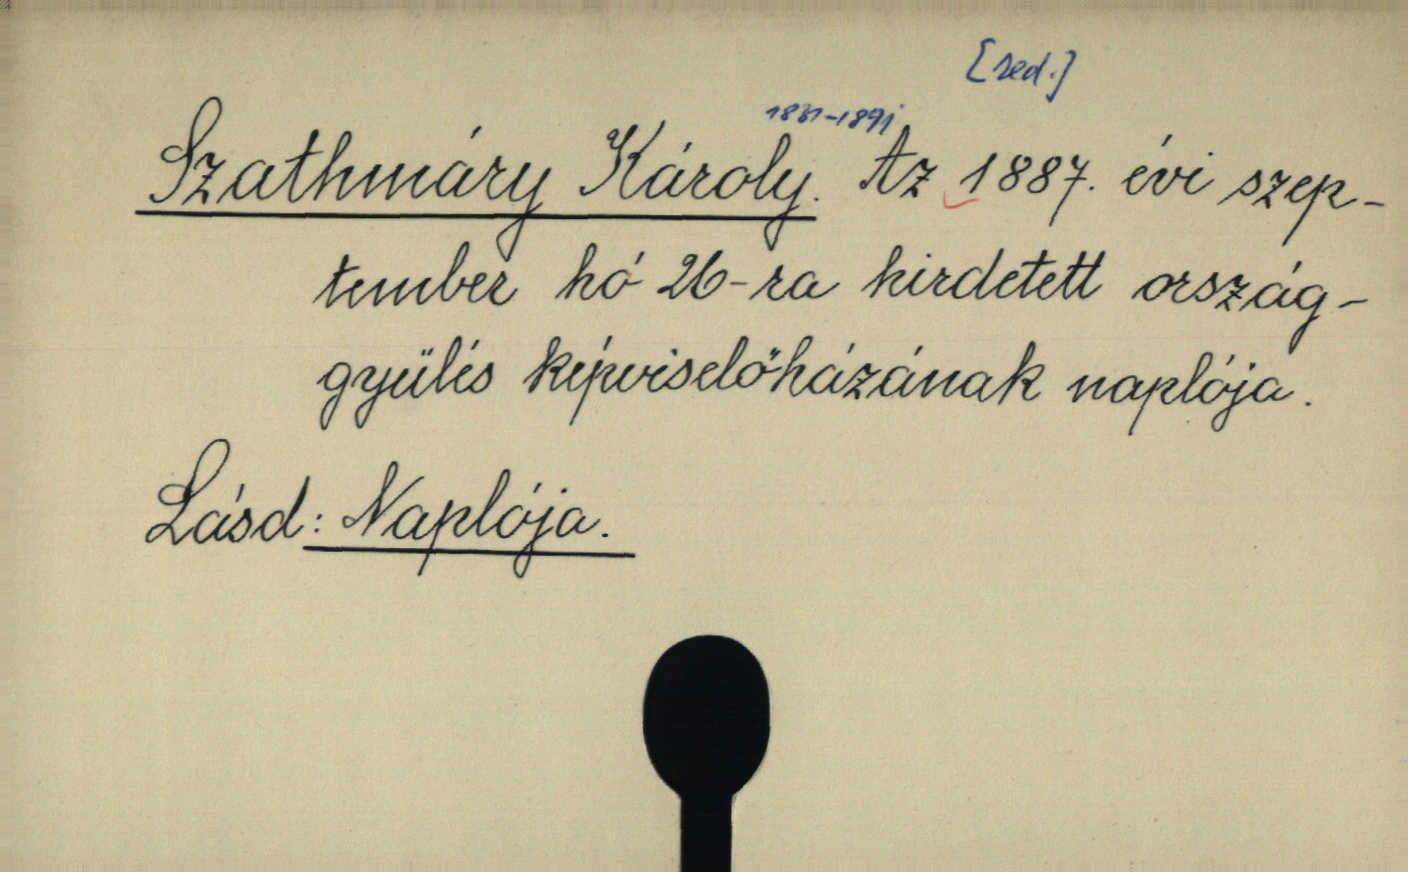 [red.]
1831-1891
Szathmáry Károly. Az 1887. évi szep-
tember hó 26-ra hirdetett ország-
gyülés képviselőházának naplója.
Lásd: Naplója.